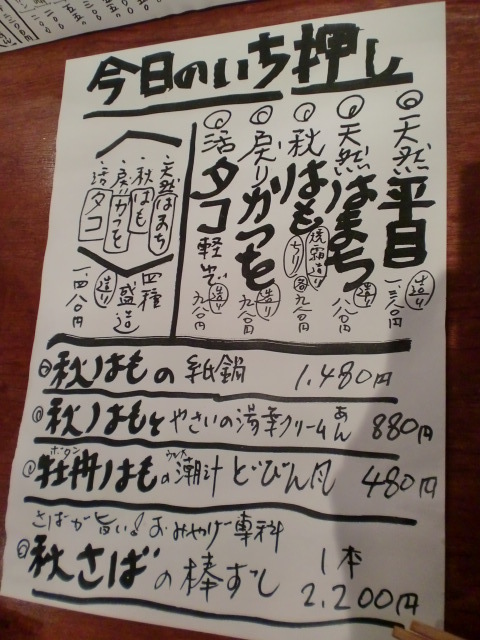 今日のいち押し
天然平目 造り 一、三八〇円
天然はまち 造り 八八〇円
秋はも 焼霜造り ちり 各九八〇円
戻りかつを 造り 九八〇円
活タコ 軽く 造り 九八〇円
・天然はまち
・秋はも
・戻りかつを
・活タコ
四種盛造
造り 一、四八〇円
秋はもの紙鍋 1,480円
秋はもとやさいの湯葉クリームあん 880円
牡丹はもの潮汁どびん風 480円
ボタン
さばが旨い!おみやげ専科
秋さばの棒ずし 1本 2,200円